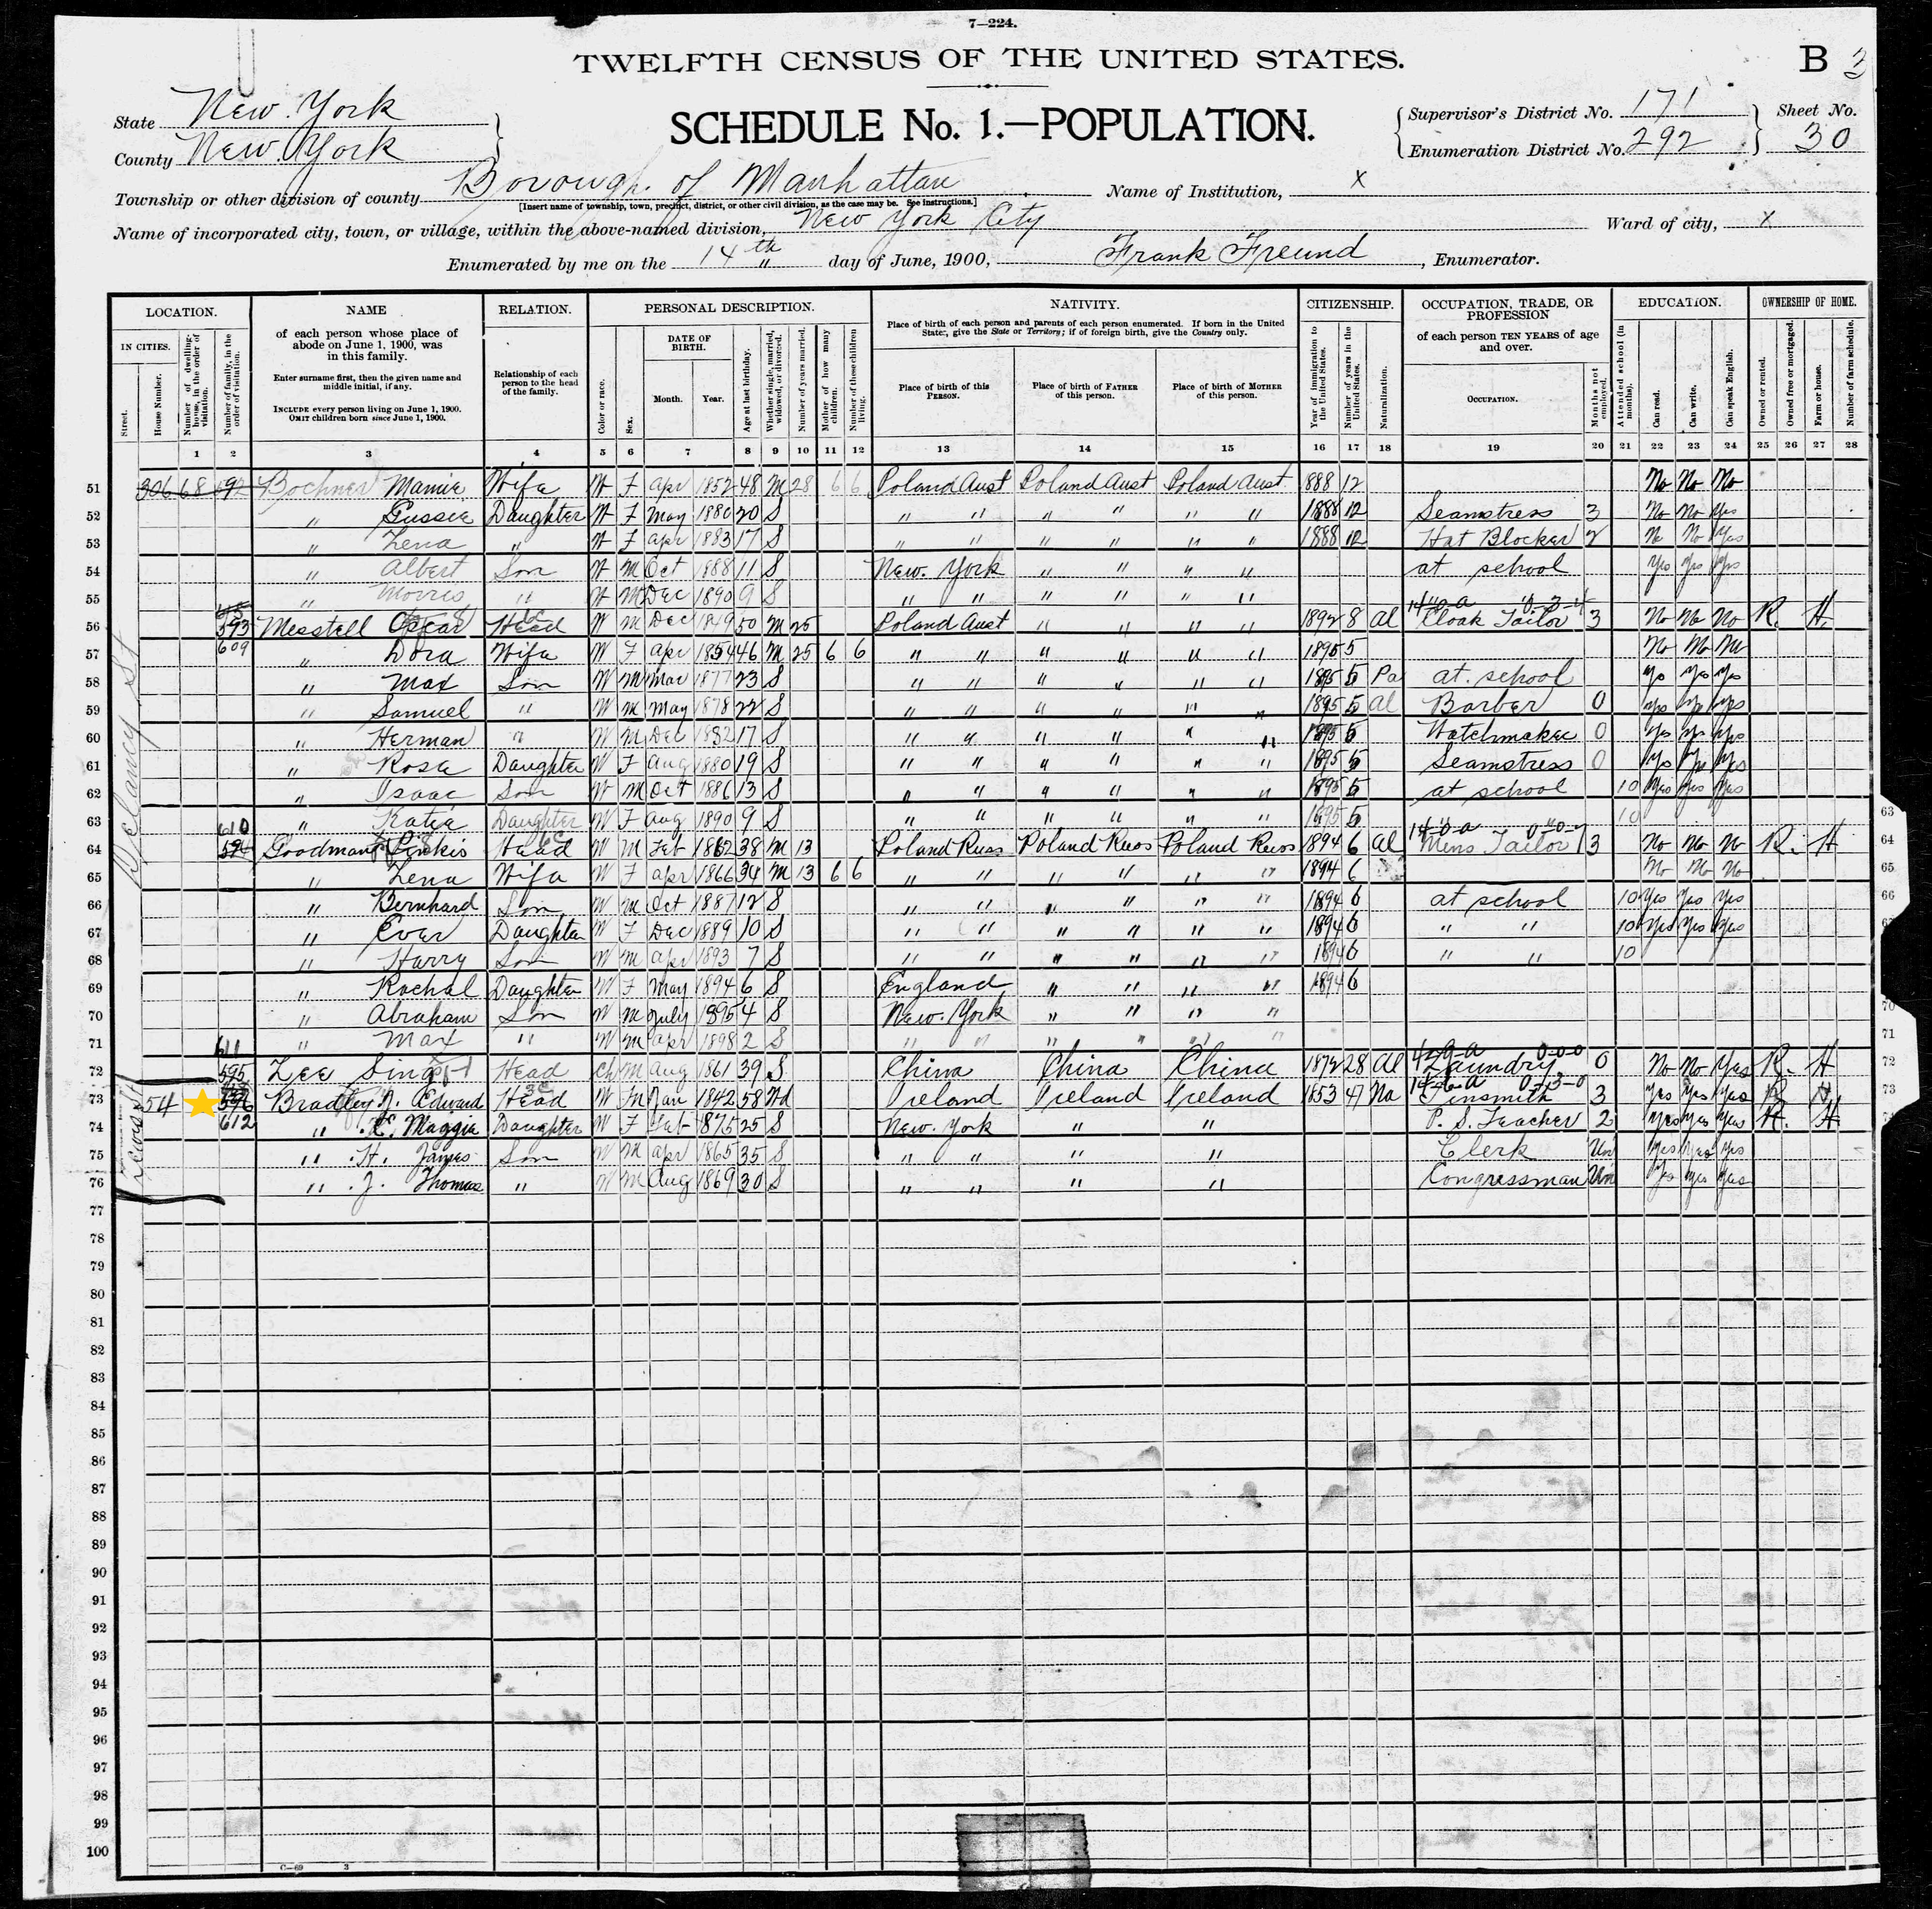 7—224.
TWELFTH CENSUS OF THE UNITED STATES.
B
SCHEDULE No. 1.—POPULATION.
State New York
County New York
Supervisor's District No. 171
Enumeration District No. 292
Sheet No.
30
Township or other division of county Borough of Manhattan
[Insert name of township, town, precinct, district, or other civil division, as the case may be. See instructions.]
Name of Institution, x
Name of incorporated city, town, or village, within the above-named division, New York City
Ward of city, x
Enumerated by me on the 14th day of June, 1900, Frank Freund, Enumerator.
LOCATION. NAME RELATION. PERSONAL DESCRIPTION. NATIVITY. CITIZENSHIP. OCCUPATION, TRADE, OR PROFESSION EDUCATION. OWNERSHIP OF HOME.
IN CITIES.
Street.
House Number.
Number of dwelling-house, in the order of visitation.
Number of family, in the order of visitation.
of each person whose place of abode on June 1, 1900, was in this family.
Enter surname first, then the given name and middle initial, if any.
INCLUDE every person living on June 1, 1900.
OMIT children born since June 1, 1900.
Relationship of each person to the head of the family.
Color or race.
Sex.
DATE OF BIRTH.
Month. Year.
Age at last birthday.
Whether single, married, widowed, or divorced.
Number of years married.
Mother of how many children.
Number of these children living.
Place of birth of each person and parents of each person enumerated. If born in the United States, give the State or Territory; if of foreign birth, give the Country only.
Place of birth of this PERSON.
Place of birth of FATHER of this person.
Place of birth of MOTHER of this person.
Year of immigration to the United States.
Number of years in the United States.
Naturalization.
of each person TEN YEARS of age and over.
OCCUPATION.
Months not employed.
Attended school (in months).
Can read.
Can write.
Can speak English.
Owned or rented.
Owned free or mortgaged.
Farm or house.
Number of farm schedule.
1 2 3 4 5 6 7 8 9 10 11 12 13 14 15 16 17 18 19 20 21 22 23 24 25 26 27 28
Delancy St
51 306 68 592 Bochner Mamie Wife W F Apr 1852 48 M 28 6 6 Poland Aust Poland Aust Poland Aust 1888 12 No No No
52 " Gussie Daughter W F May 1880 20 S " " " " " " 1888 12 Seamstress 3 No No Yes
53 " Lena " W F Apr 1883 17 S " " " " " " 1888 12 Hat Blocker 2 No No Yes
54 " Albert Son W M Oct 1888 11 S New York " " " " at school Yes Yes Yes
55 " Morris " W M Dec 1890 9 S " " " " " "
56 593 Messtell Oscar Head W M Dec 1849 50 M 25 Poland Aust " " " " 1892 8 Al Cloak Tailor 3 No No No R. H.
57 609 " Dora Wife W F Apr 1854 46 M 25 6 6 " " " " " " 1895 5 No No No
58 " Max Son W M Mar 1877 23 S " " " " " " 1895 5 Pa at school Yes Yes Yes
59 " Samuel " W M May 1878 22 S " " " " " " 1895 5 Al Barber 0 Yes Yes Yes
60 " Herman " W M Dec 1882 17 S " " " " " " 1895 5 Watchmaker 0 Yes Yes Yes
61 " Rosa Daughter W F Aug 1880 19 S " " " " " " 1895 5 Seamstress 0 Yes Yes Yes
62 " Isaac Son W M Oct 1886 13 S " " " " " " 1895 5 at school 10 Yes Yes Yes
63 " Katie Daughter W F Aug 1890 9 S " " " " " " 1895 5 10
610
64 594 Goodman Pinkis Head W M Feb 1862 38 M 13 Poland Russ Poland Russ Poland Russ 1894 6 Al Mens Tailor 3 No No No R. H
65 " Lena Wife W F Apr 1866 34 M 13 6 6 " " " " " " 1894 6 No No No
66 " Bernhard Son W M Oct 1887 12 S " " " " " " 1894 6 at school 10 Yes Yes Yes
67 " Ever Daughter W F Dec 1889 10 S " " " " " " 1894 6 " " 10 Yes Yes Yes
68 " Harry Son W M Apr 1893 7 S " " " " " " 1894 6 " " 10
69 " Rachal Daughter W F May 1894 6 S England " " " " 1894 6
70 " Abraham Son W M July 1895 4 S New York " " " "
71 " Max " W M Apr 1898 2 S " " " " " "
611
72 595 Lee Sing Head Ch M Aug 1861 39 S China China China 1872 28 Al Laundry 0 No No Yes R. H
73 54 596 Bradley J. Edward Head W M Jan 1842 58 Wd Ireland Ireland Ireland 1853 47 Na Tinsmith 3 Yes Yes Yes R H
74 612 " E. Maggie Daughter W F Feb 1875 25 S New York " " P. S. Teacher 2 Yes Yes Yes H. H.
75 " H. James Son W M Apr 1865 35 S " " " " Clerk Un Yes Yes Yes
76 " J. Thomas " W M Aug 1869 30 S " " " " Congressman Un Yes Yes Yes
77
78
79
80
81
82
83
84
85
86
87
88
89
90
91
92
93
94
95
96
97
98
99
100
C—69 3